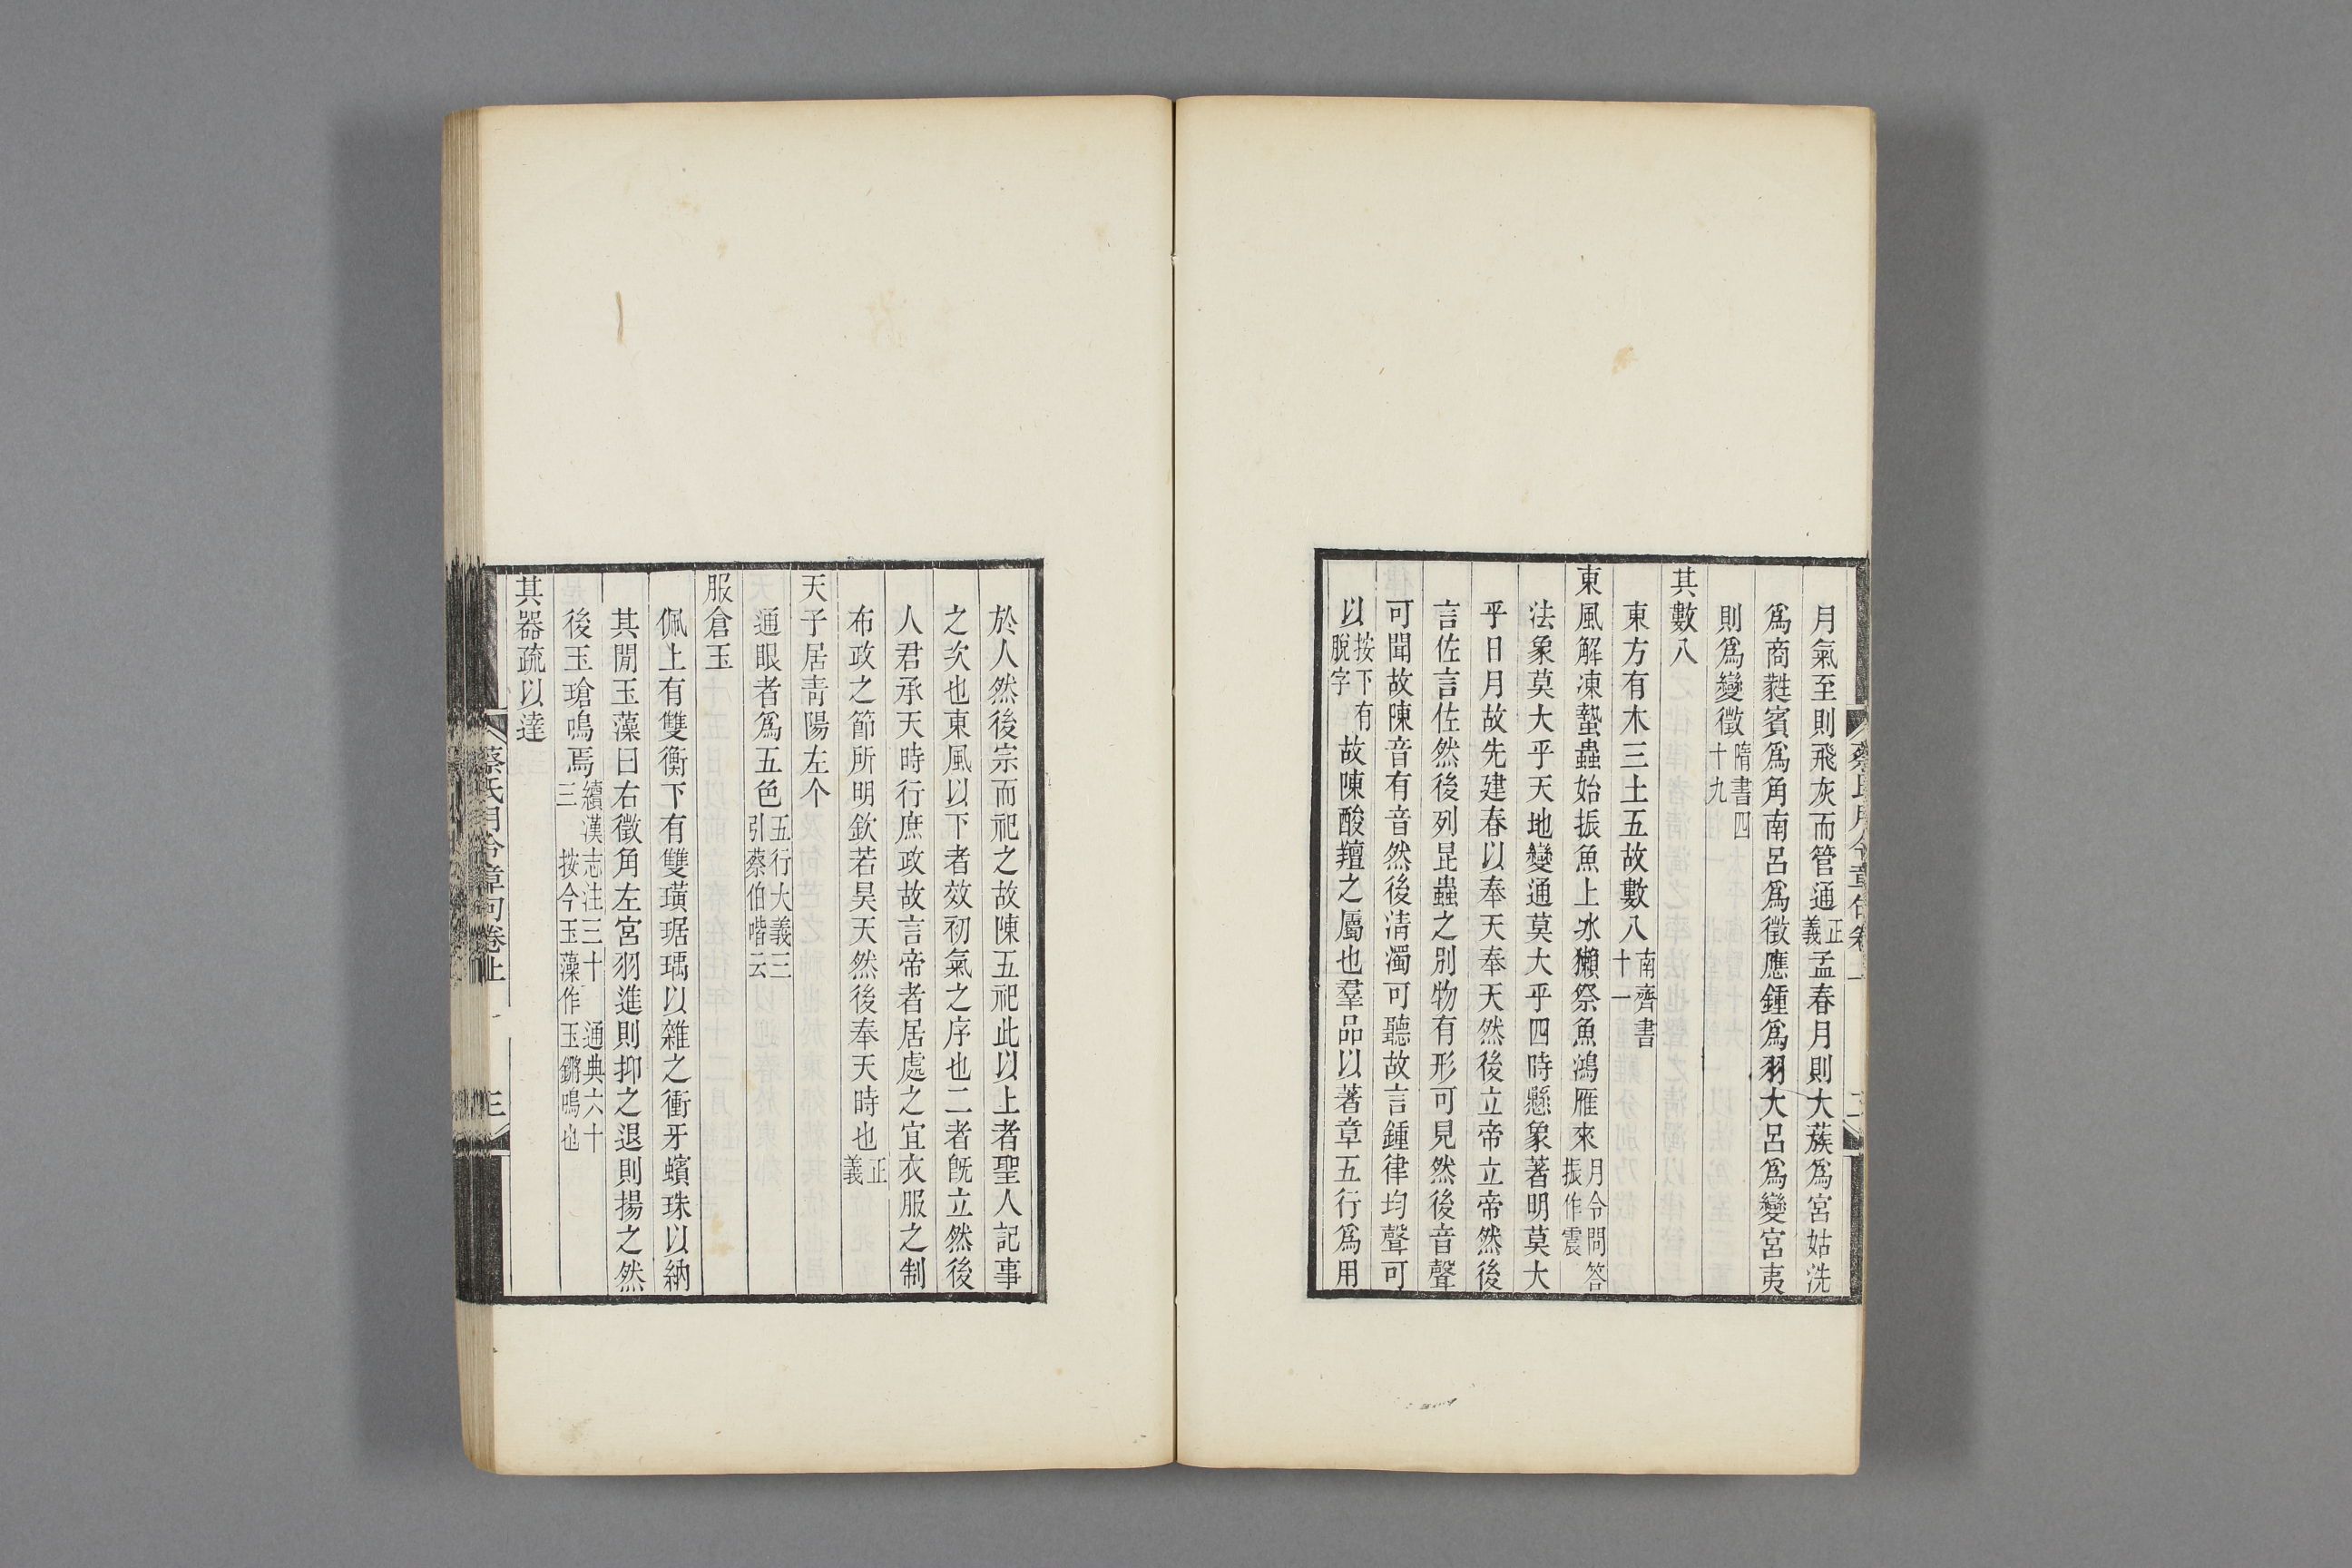 月氣至則飛灰而管通正義孟春月則大蔟爲宮姑洗
爲商蕤賓爲角南呂爲徵應鍾爲羽大呂爲變宮夷
則爲變徵隋書四十九
其數八
東方有木三土五故數八南齊書十一
東風解凍蟄蟲始振魚上冰獺祭魚鴻雁來月令問答振作震
法象莫大乎天地變通莫大乎四時懸象著明莫大
乎日月故先建春以奉天奉天然後立帝立帝然後
言佐言佐然後列昆蟲之別物有形可見然後音聲
可聞故陳音有音然後淸濁可聽故言鍾律均聲可
以按下有脫字故陳酸羶之屬也羣品以著章五行爲用
於人然後宗而祀之故陳五祀此以上者聖人記事
之次也東風以下者效初氣之序也二者旣立然後
人君承天時行庶政故言帝者居處之宜衣服之制
布政之節所明欽若昊天然後奉天時也正義
天子居靑陽左个
通眼者爲五色五行大義三引蔡伯喈云
服倉玉
佩上有雙衡下有雙璜琚瑀以雜之衝牙蠙珠以納
其閒玉藻曰右徵角左宮羽進則抑之退則揚之然
後玉瑲鳴焉續漢志注三十三 通典六十三 按今玉藻作玉鏘鳴也
其器疏以達
蔡氏月令章句卷上 三